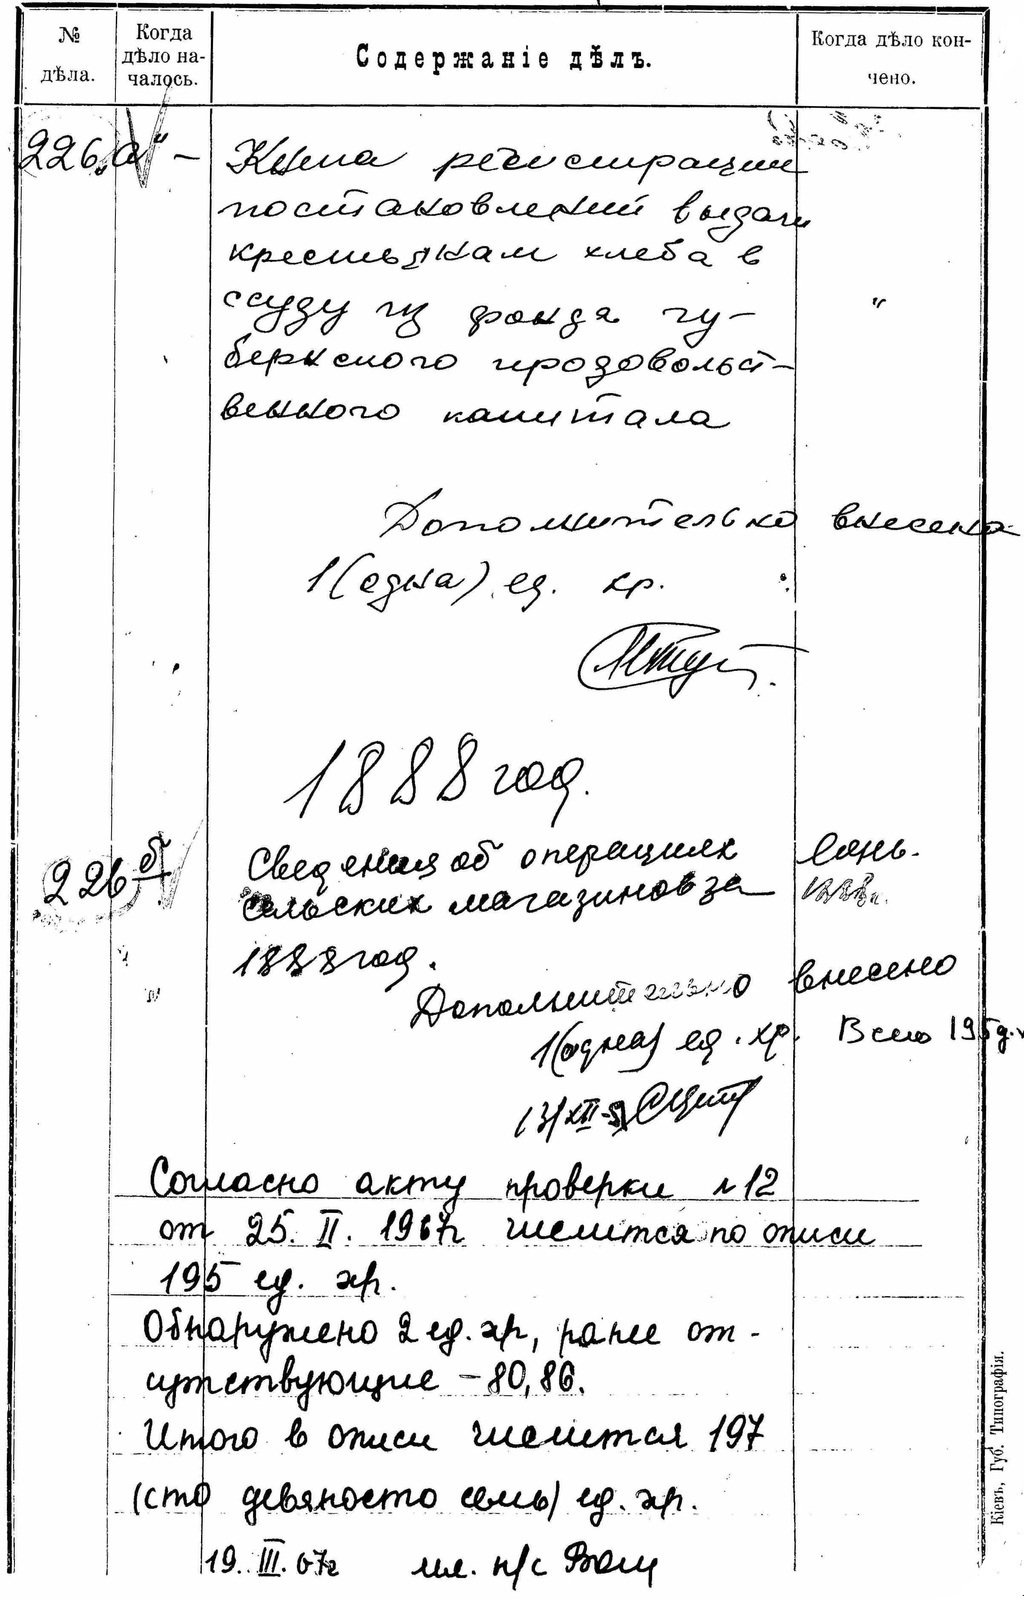 № дѣла.
Когда дѣло началось.
Содержаніе дѣлъ.
Когда дѣло кончено.
226 „а" – Книга регистрации
постановлений выдачи
крестьянам хлеба в
ссуду из фонда гу-
бернского продовольст-
венного капитала
"
Дополнительно внесена
1 (одна) ед. хр.
1888 год.
226 б Сведения об операциях
сельских магазинов за
1888 год.
Дополнительно внесено
1 (одна) ед. хр. Всего 195
13/XII-
Согласно акту проверки №12
от 25. II. 1967г числится по описи
195 ед. хр.
Обнаружено 2 ед. хр, ранее от-
сутствующие – 80, 86.
Итого в описи числится 197
(сто девяносто семь) ед. хр.
19. III. 67г мл. н/с
Кіевъ, Губ. Типографія.